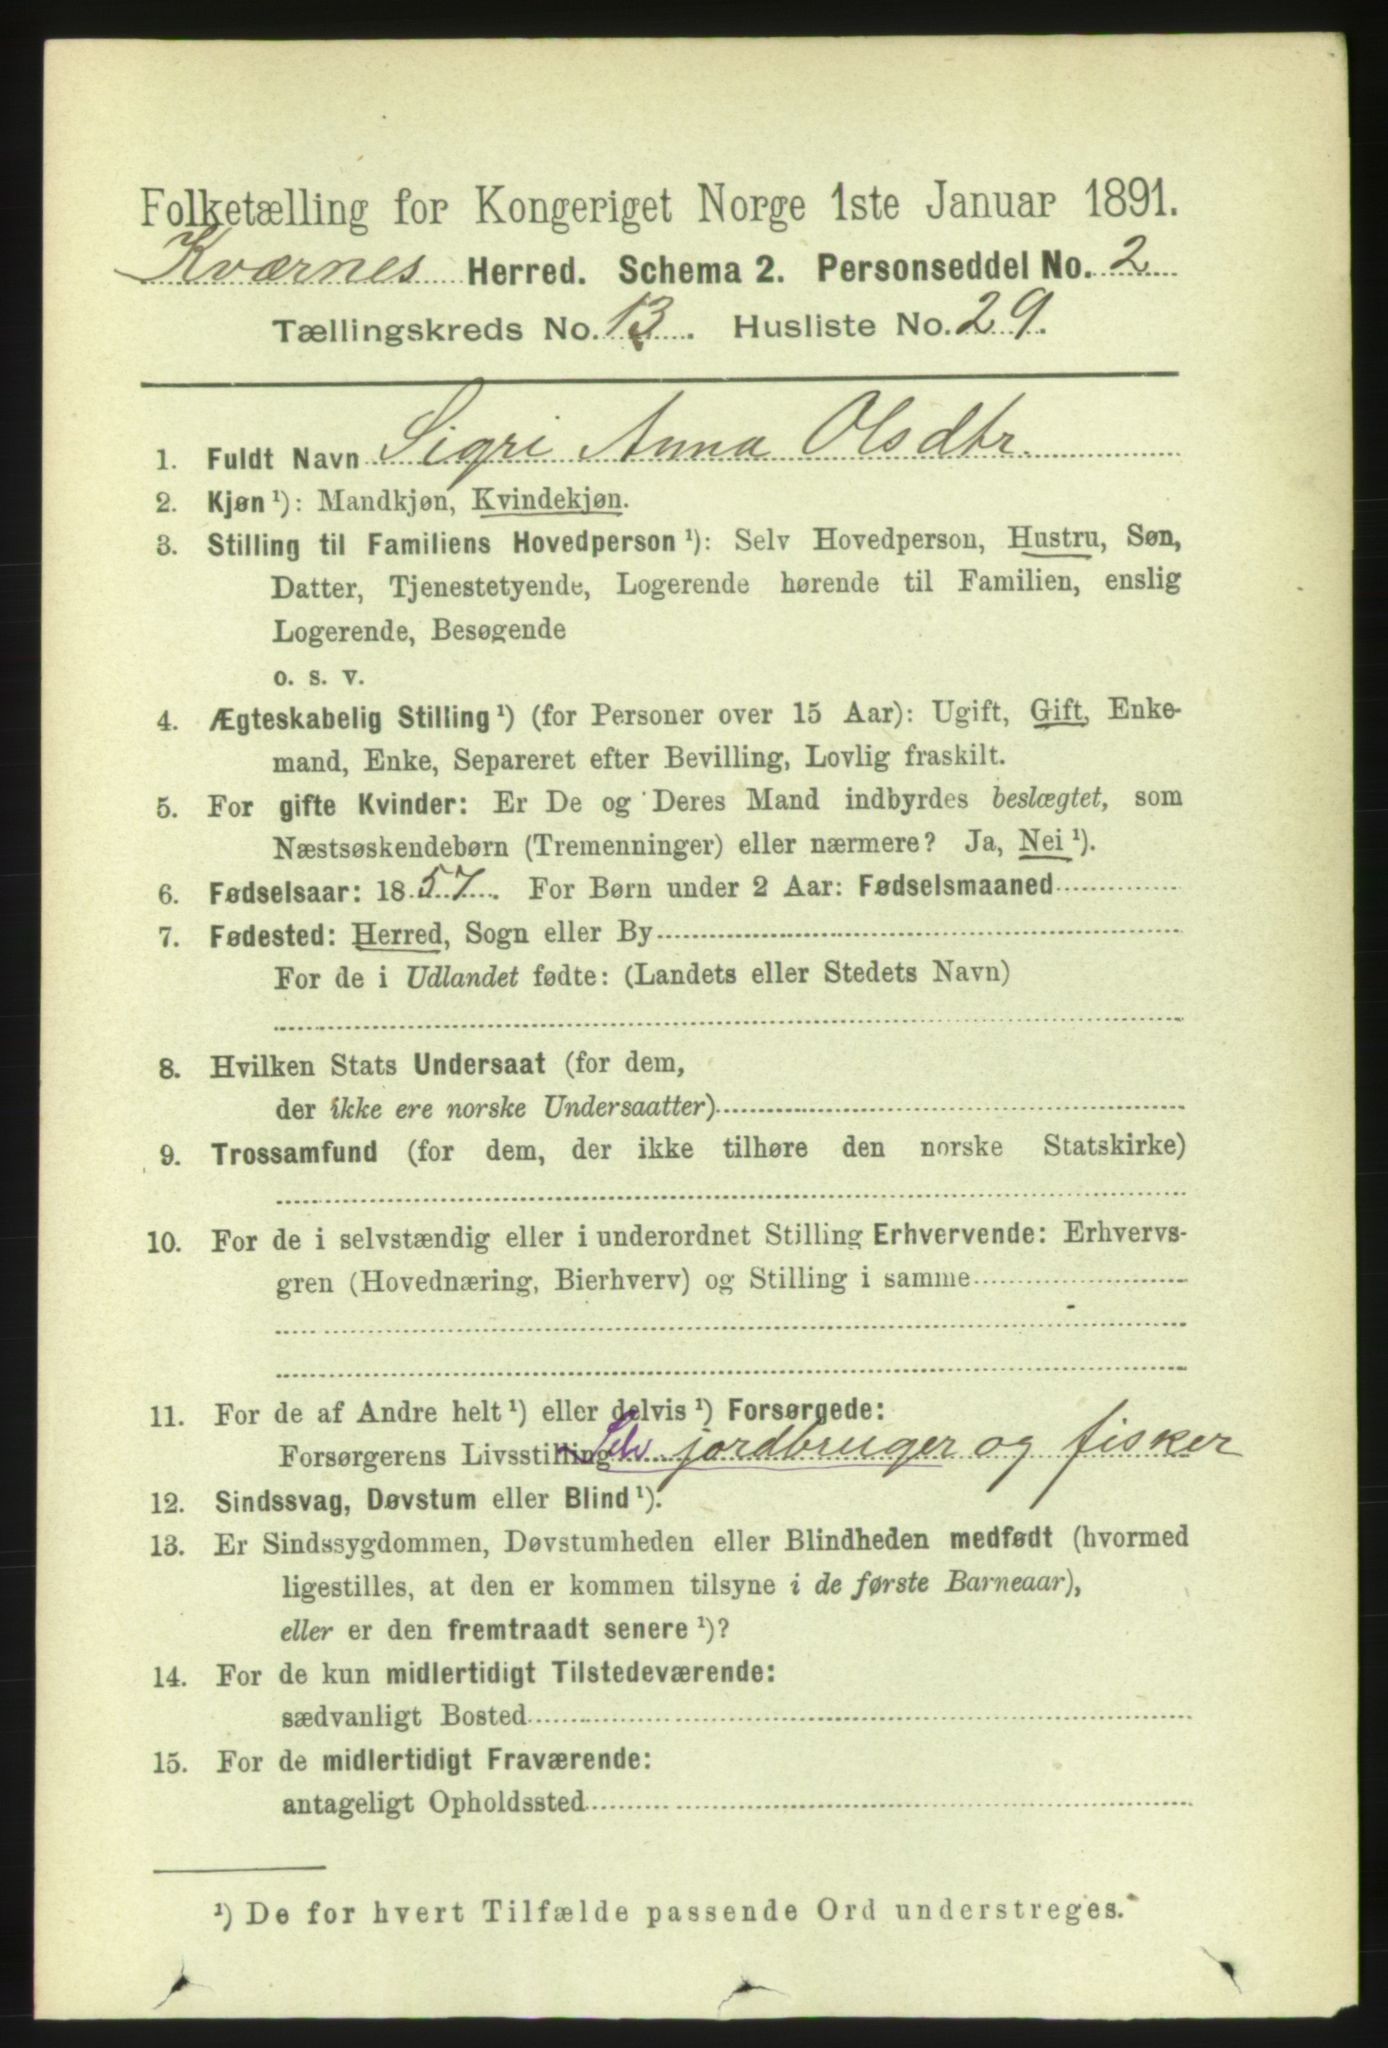 Folketælling for Kongeriget Norge 1ste Januar 1891.
Kværnes Herred. Schema 2. Personseddel No. 2
Tællingskreds No. 13. Husliste No. 29.
1. Fuldt Navn Sigri Anna Olsdtr.
2. Kjøn ¹): Mandkjøn, Kvindekjøn.
3. Stilling til Familiens Hovedperson ¹): Selv Hovedperson, Hustru, Søn,
Datter, Tjenestetyende, Logerende hørende til Familien, enslig
Logerende, Besøgende
o. s. v.
4. Ægteskabelig Stilling ¹) (for Personer over 15 Aar): Ugift, Gift, Enke-
mand, Enke, Separeret efter Bevilling, Lovlig fraskilt.
5. For gifte Kvinder: Er De og Deres Mand indbyrdes beslægtet, som
Næstsøskendebørn (Tremenninger) eller nærmere? Ja, Nei ¹).
6. Fødselsaar: 1857. For Børn under 2 Aar: Fødselsmaaned
7. Fødested: Herred, Sogn eller By
For de i Udlandet fødte: (Landets eller Stedets Navn)
8. Hvilken Stats Undersaat (for dem,
der ikke ere norske Undersaatter)
9. Trossamfund (for dem, der ikke tilhøre den norske Statskirke)
10. For de i selvstændig eller i underordnet Stilling Erhvervende: Erhvervs-
gren (Hovednæring, Bierhverv) og Stilling i samme
11. For de af Andre helt ¹) eller delvis ¹) Forsørgede:
Forsørgerens Livsstilling Selv jordbruger og fisker
12. Sindssvag, Døvstum eller Blind ¹).
13. Er Sindssygdommen, Døvstumheden eller Blindheden medfødt (hvormed
ligestilles, at den er kommen tilsyne i de første Barneaar),
eller er den fremtraadt senere ¹)?
14. For de kun midlertidigt Tilstedeværende:
sædvanligt Bosted
15. For de midlertidigt Fraværende:
antageligt Opholdssted
¹) De for hvert Tilfælde passende Ord understreges.